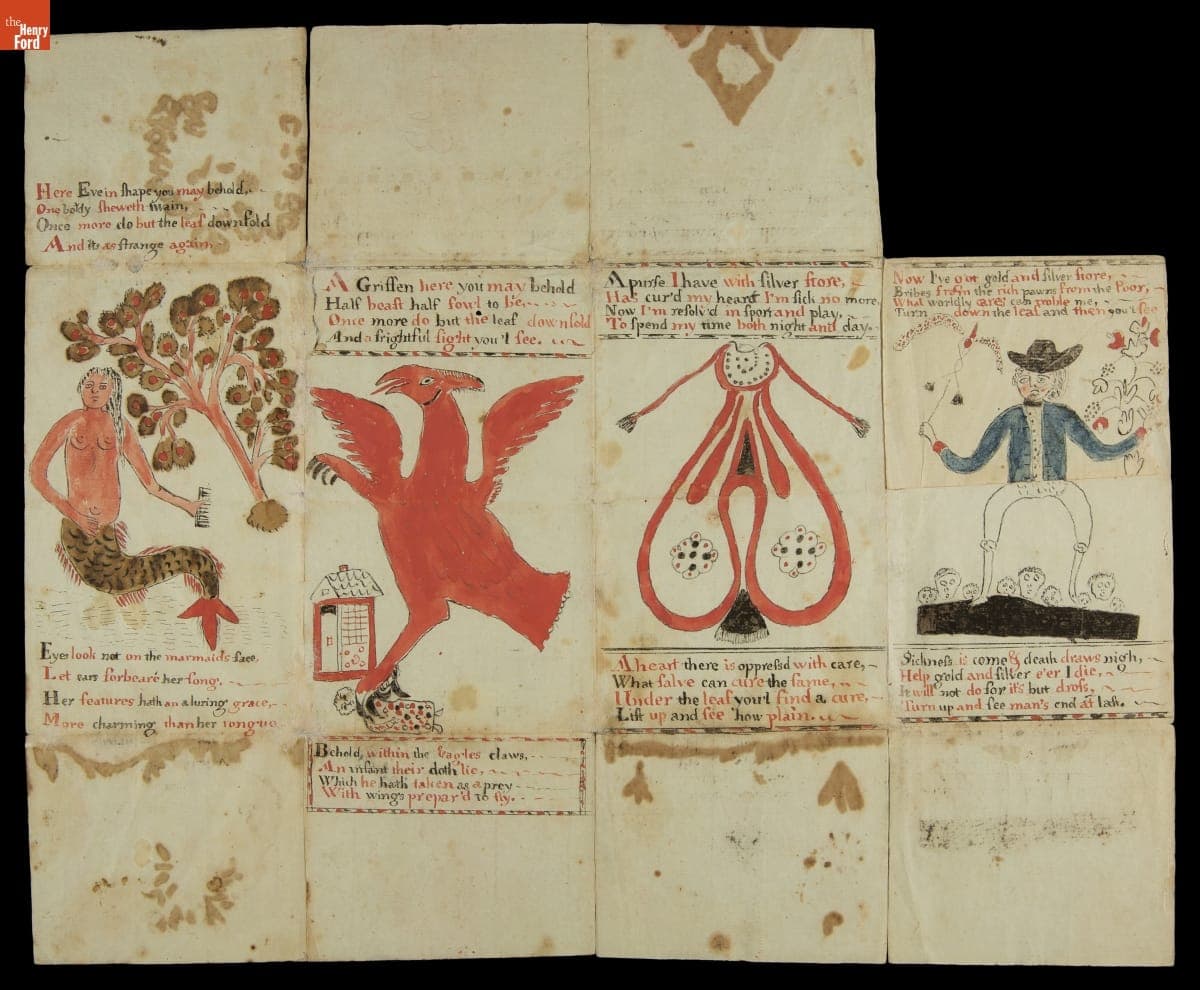 the
Henry
Ford
Here Eve in shape you may behold,
One body sheweth twain,
Once more do but the leaf downfold
And its as strange again.
Eyes look not on the marmaids face,
Let ears forbeare her song,
Her features hath an aluring grace,
More charming than her tongue
A Griffen here you may behold
Half beast half fowl to be,
Once more do but the leaf downfold
And a frightful sight you'l see.
Behold, within the Eagles claws,
An infant their doth lie,
Which he hath taken as a prey
With wings prepar'd to fly.
A purse I have with silver store,
Has cur'd my heart I'm sick no more,
Now I'm resolv'd in sport and play,
To spend my time both night and day.
A heart there is oppress'd with care,
What salve can cure the same,
Under the leaf you'l find a cure,
Lift up and see how plain.
Now I've got gold and silver store,
Bribes from the rich pawns from the Poor,
What worldly cares can troble me,
Turn down the leaf and then you'l see
Sickness is come & death draws nigh,
Help gold and silver e'er I die,
It will not do for it's but dross,
Turn up and see man's end at last.